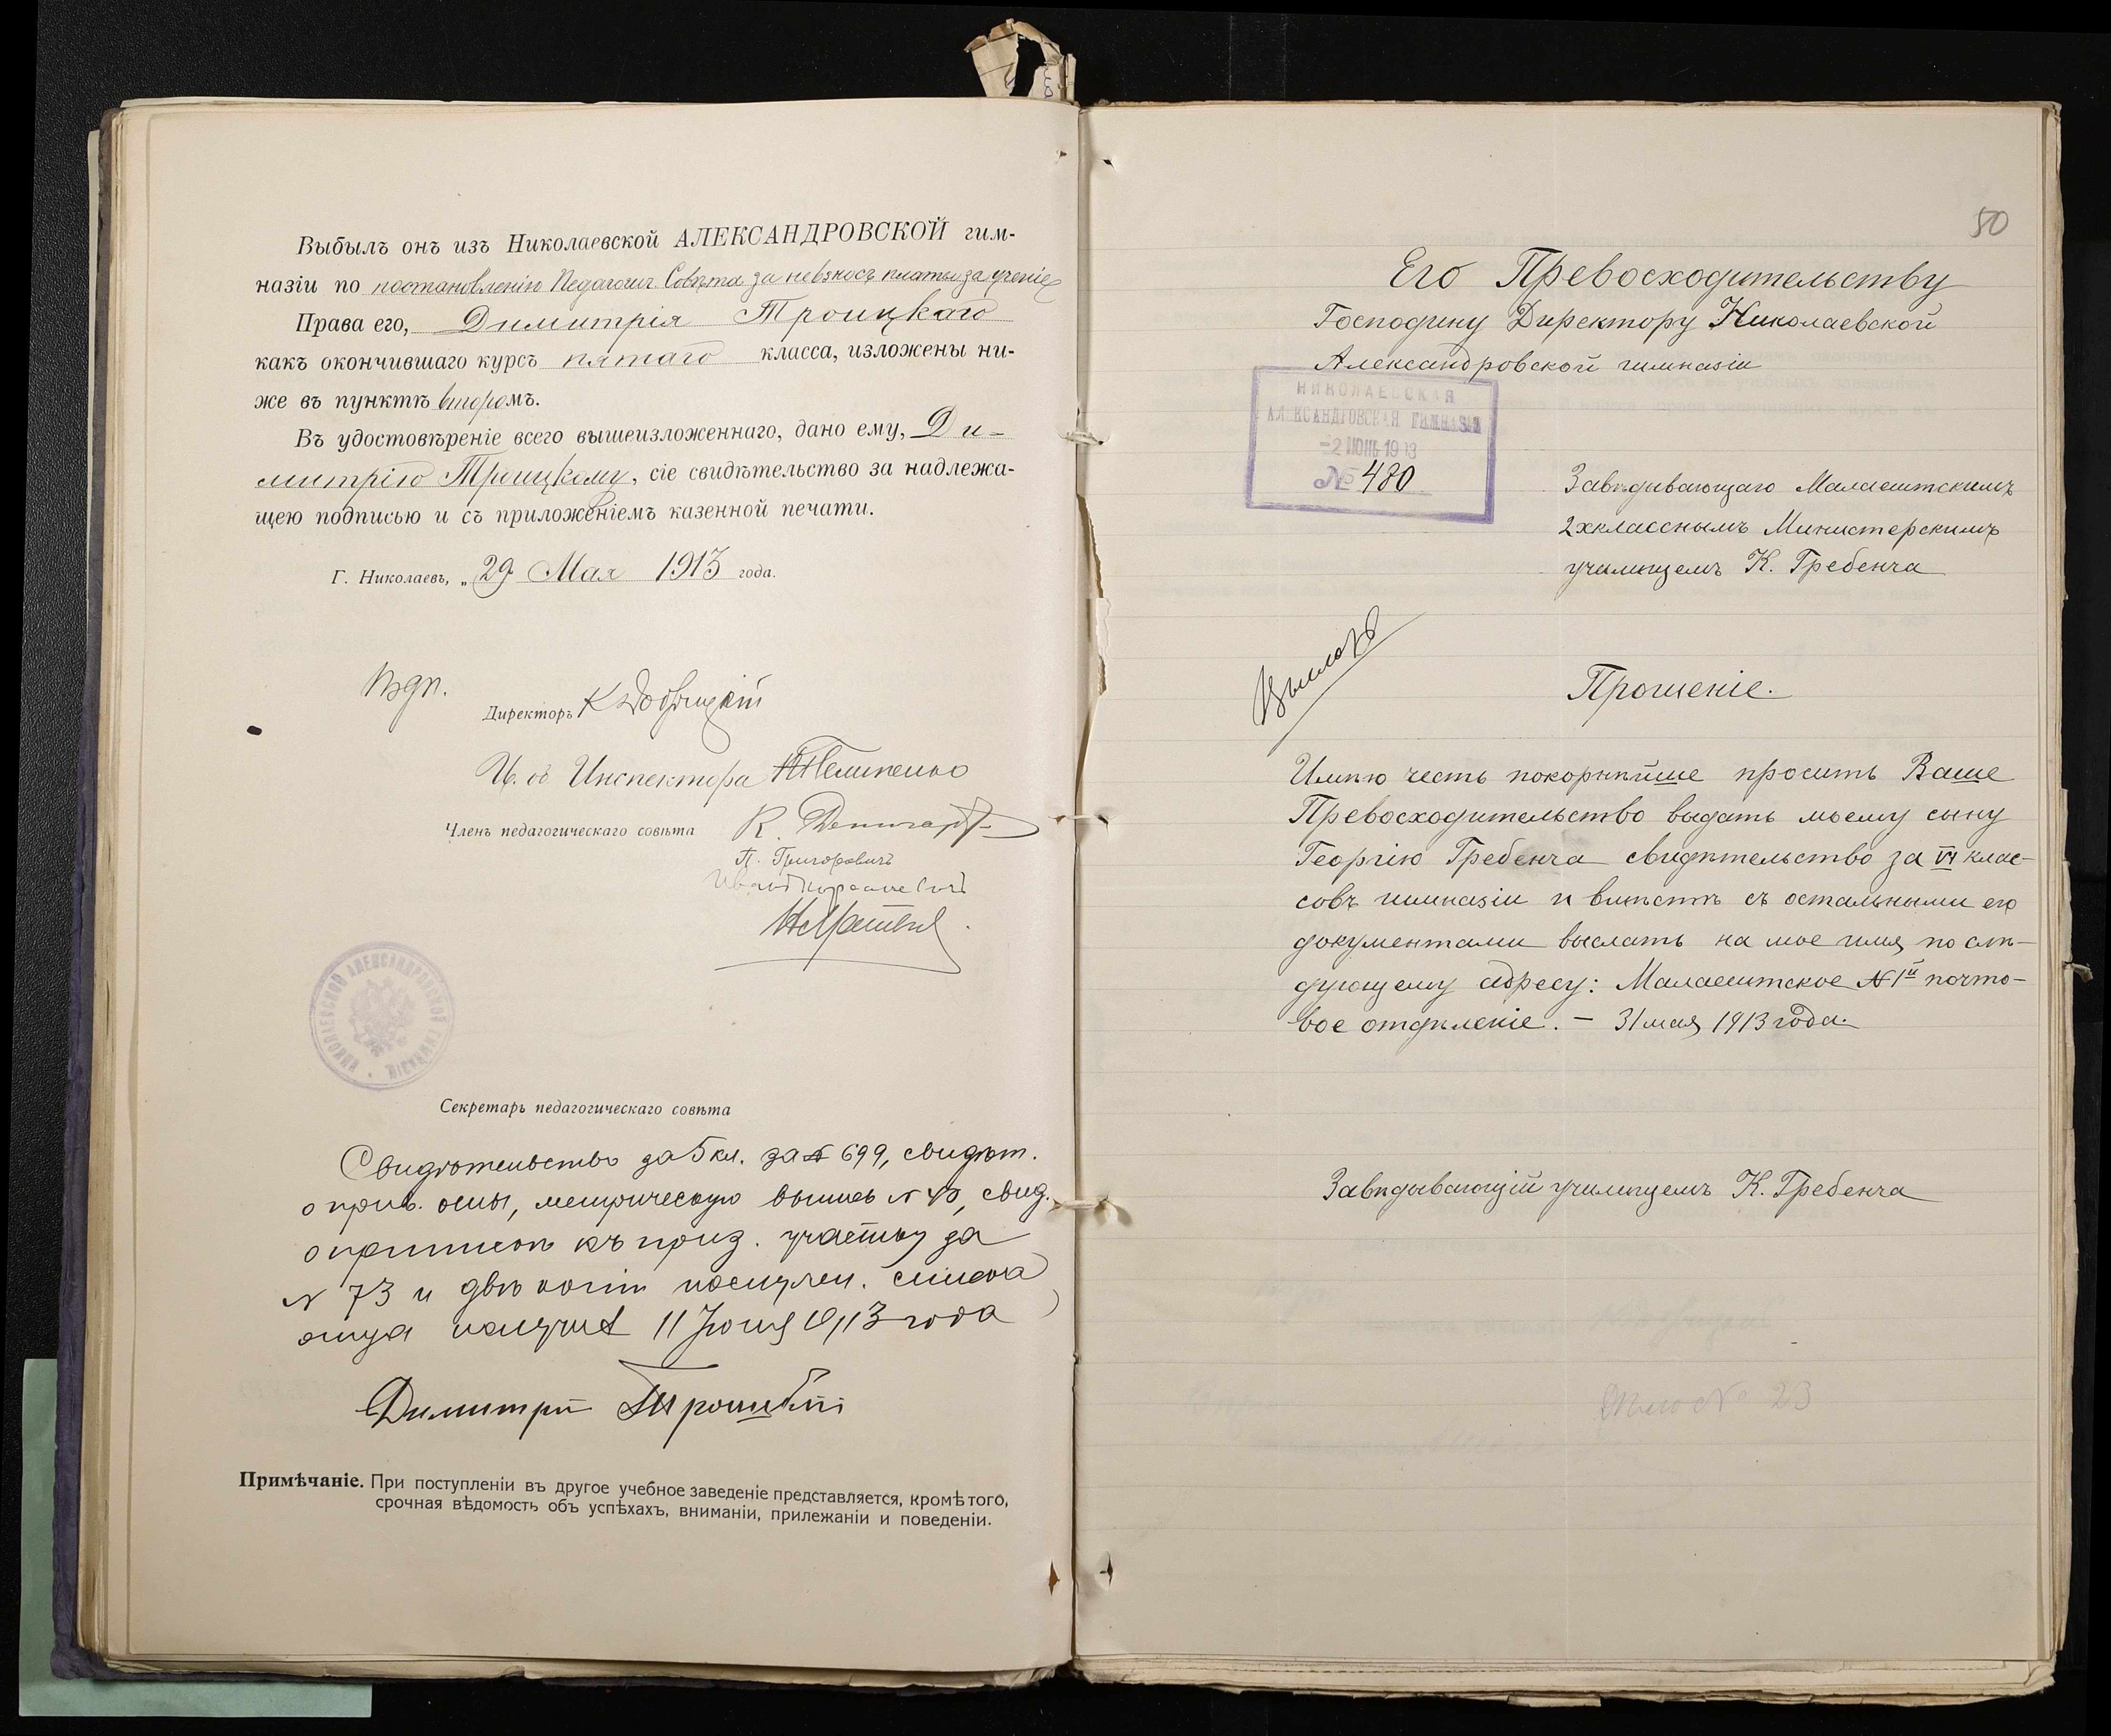 Выбылъ онъ изъ Николаевской АЛЕКСАНДРОВСКОЙ гим-
назіи по постановленію Педагогич Совѣта за невзносъ платы за ученіе
Права его, Димитрія Троицкаго
какъ окончившаго курсъ пятаго класса, изложены ни-
же въ пунктѣ второмъ.
Въ удостовѣреніе всего вышеизложеннаго, дано ему, Ди-
митрію Троицкому, сіе свидѣтельство за надлежа-
щею подписью и съ приложеніемъ казенной печати.
Г. Николаевъ, „29 Мая 1913 года.
Директоръ К
И. об Инспектора
Членъ педагогическаго совѣта К.
П. Григоровичъ
НИКОЛАЕВСКОЙ АЛЕКСАНДРОВСКОЙ ГИМНАЗІИ
Секретарь педагогическаго совѣта
Свидѣтельство за 5 кл. за № 699, свидѣт.
о прив. оспы, метрическую выпись № 40, свид.
о припискѣ къ приз. участку за
№ 73 и двѣ копіи послужн. списка
отца получилъ 11 Іюня 1913 года
Димитрій Троицкій
Примѣчаніе. При поступленіи въ другое учебное заведеніе представляется, кромѣ того,
срочная вѣдомость объ успѣхахъ, вниманіи, прилежаніи и поведеніи.
50
Его Превосходительству
Господину Директору Николаевской
Александровской гимназіи
НИКОЛАЕВСКАЯ
АЛЕКСАНДРОВСКАЯ ГИМНАЗІЯ
-2 ІЮНЬ 1913
№ 480
Завѣдывающаго Малаештскимъ
2хкласснымъ Министерскимъ
училищемъ К. Гребенча
Прошеніе.
Имѣю честь покорнѣйше просить Ваше
Превосходительство выдать моему сыну
Георгію Гребенча свидѣтельство за VI клас-
совъ гимназіи и вмѣстѣ съ остальными его
документами выслать на мое имя по слѣ-
дующему адресу: Малаештское №1й почто-
вое отдѣленіе. – 31 мая 1913 года.
Завѣдывающій училищемъ К. Гребенча
№ 23